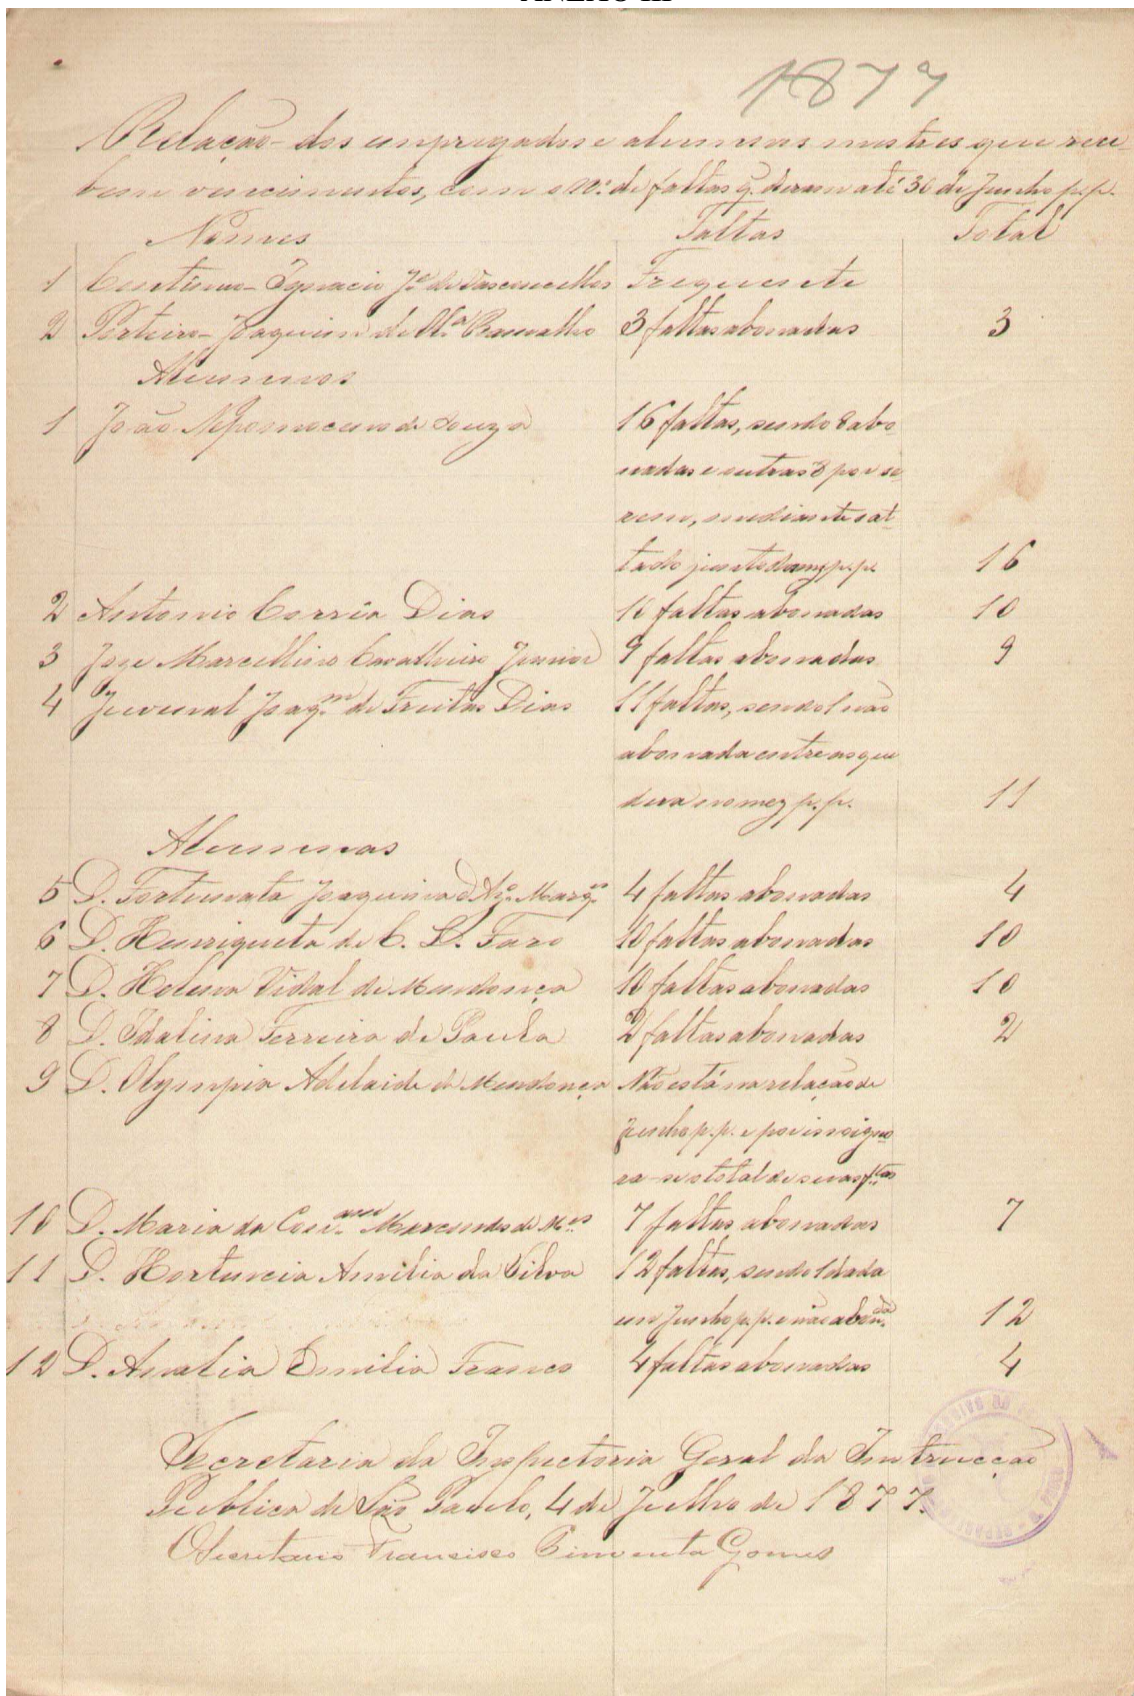 ANEXO III
1877
Relação dos empregados e alumnos mestres que rece-
bem vencimentos, com o nº de faltas q. deram até 30 de Junho p.p.
Nomes Faltas Total
1 Continuo - Ignacio Jé de Vasconcellos Frequente
2 Porteiro - Joaquim de Carvalho 3 faltas abonadas 3
Alumnos
1 João Nepomoceno de Souza 16 faltas, sendo 8 abo
nadas e outras 8 por se
rem, mediante o at-
tado junto do mez p.p. 16
2 Antonio Corrêa Dias 10 faltas abonadas 10
3 Joze Marcellino Cavalheiro Junior 9 faltas abonadas 9
4 Juvenal Joaqm de Freitas Dias 11 faltas, sendo 1 não
abonada entre as que
dera no mez p.p. 11
Alumnas
5 D. Fortunata Joaquina 4 faltas abonadas 4
6 D. Henriqueta de C. L. Faro 10 faltas abonadas 10
7 D. Helena Vidal de Mendonça 10 faltas abonadas 10
8 D. Idalina Ferreira de Paula 2 faltas abonadas 2
9 D. Olympia Adelaide de Mendonça Não está na relação de
Junho p.p. e por isso igno
ra-se o total de suas ftas
10 D. Maria da 7 faltas abonadas 7
11 D. Hortencia Amilia da Silva 12 faltas, sendo 1 dada
em Junho p.p. e não abonda 12
12 D. Analia Emilia Franco 4 faltas abonadas 4
Secretaria da Inspectoria Geral da Instrucção
Publica de São Paulo, 4 de Julho de 1877.
O Secretario Francisco Pimenta Gomes